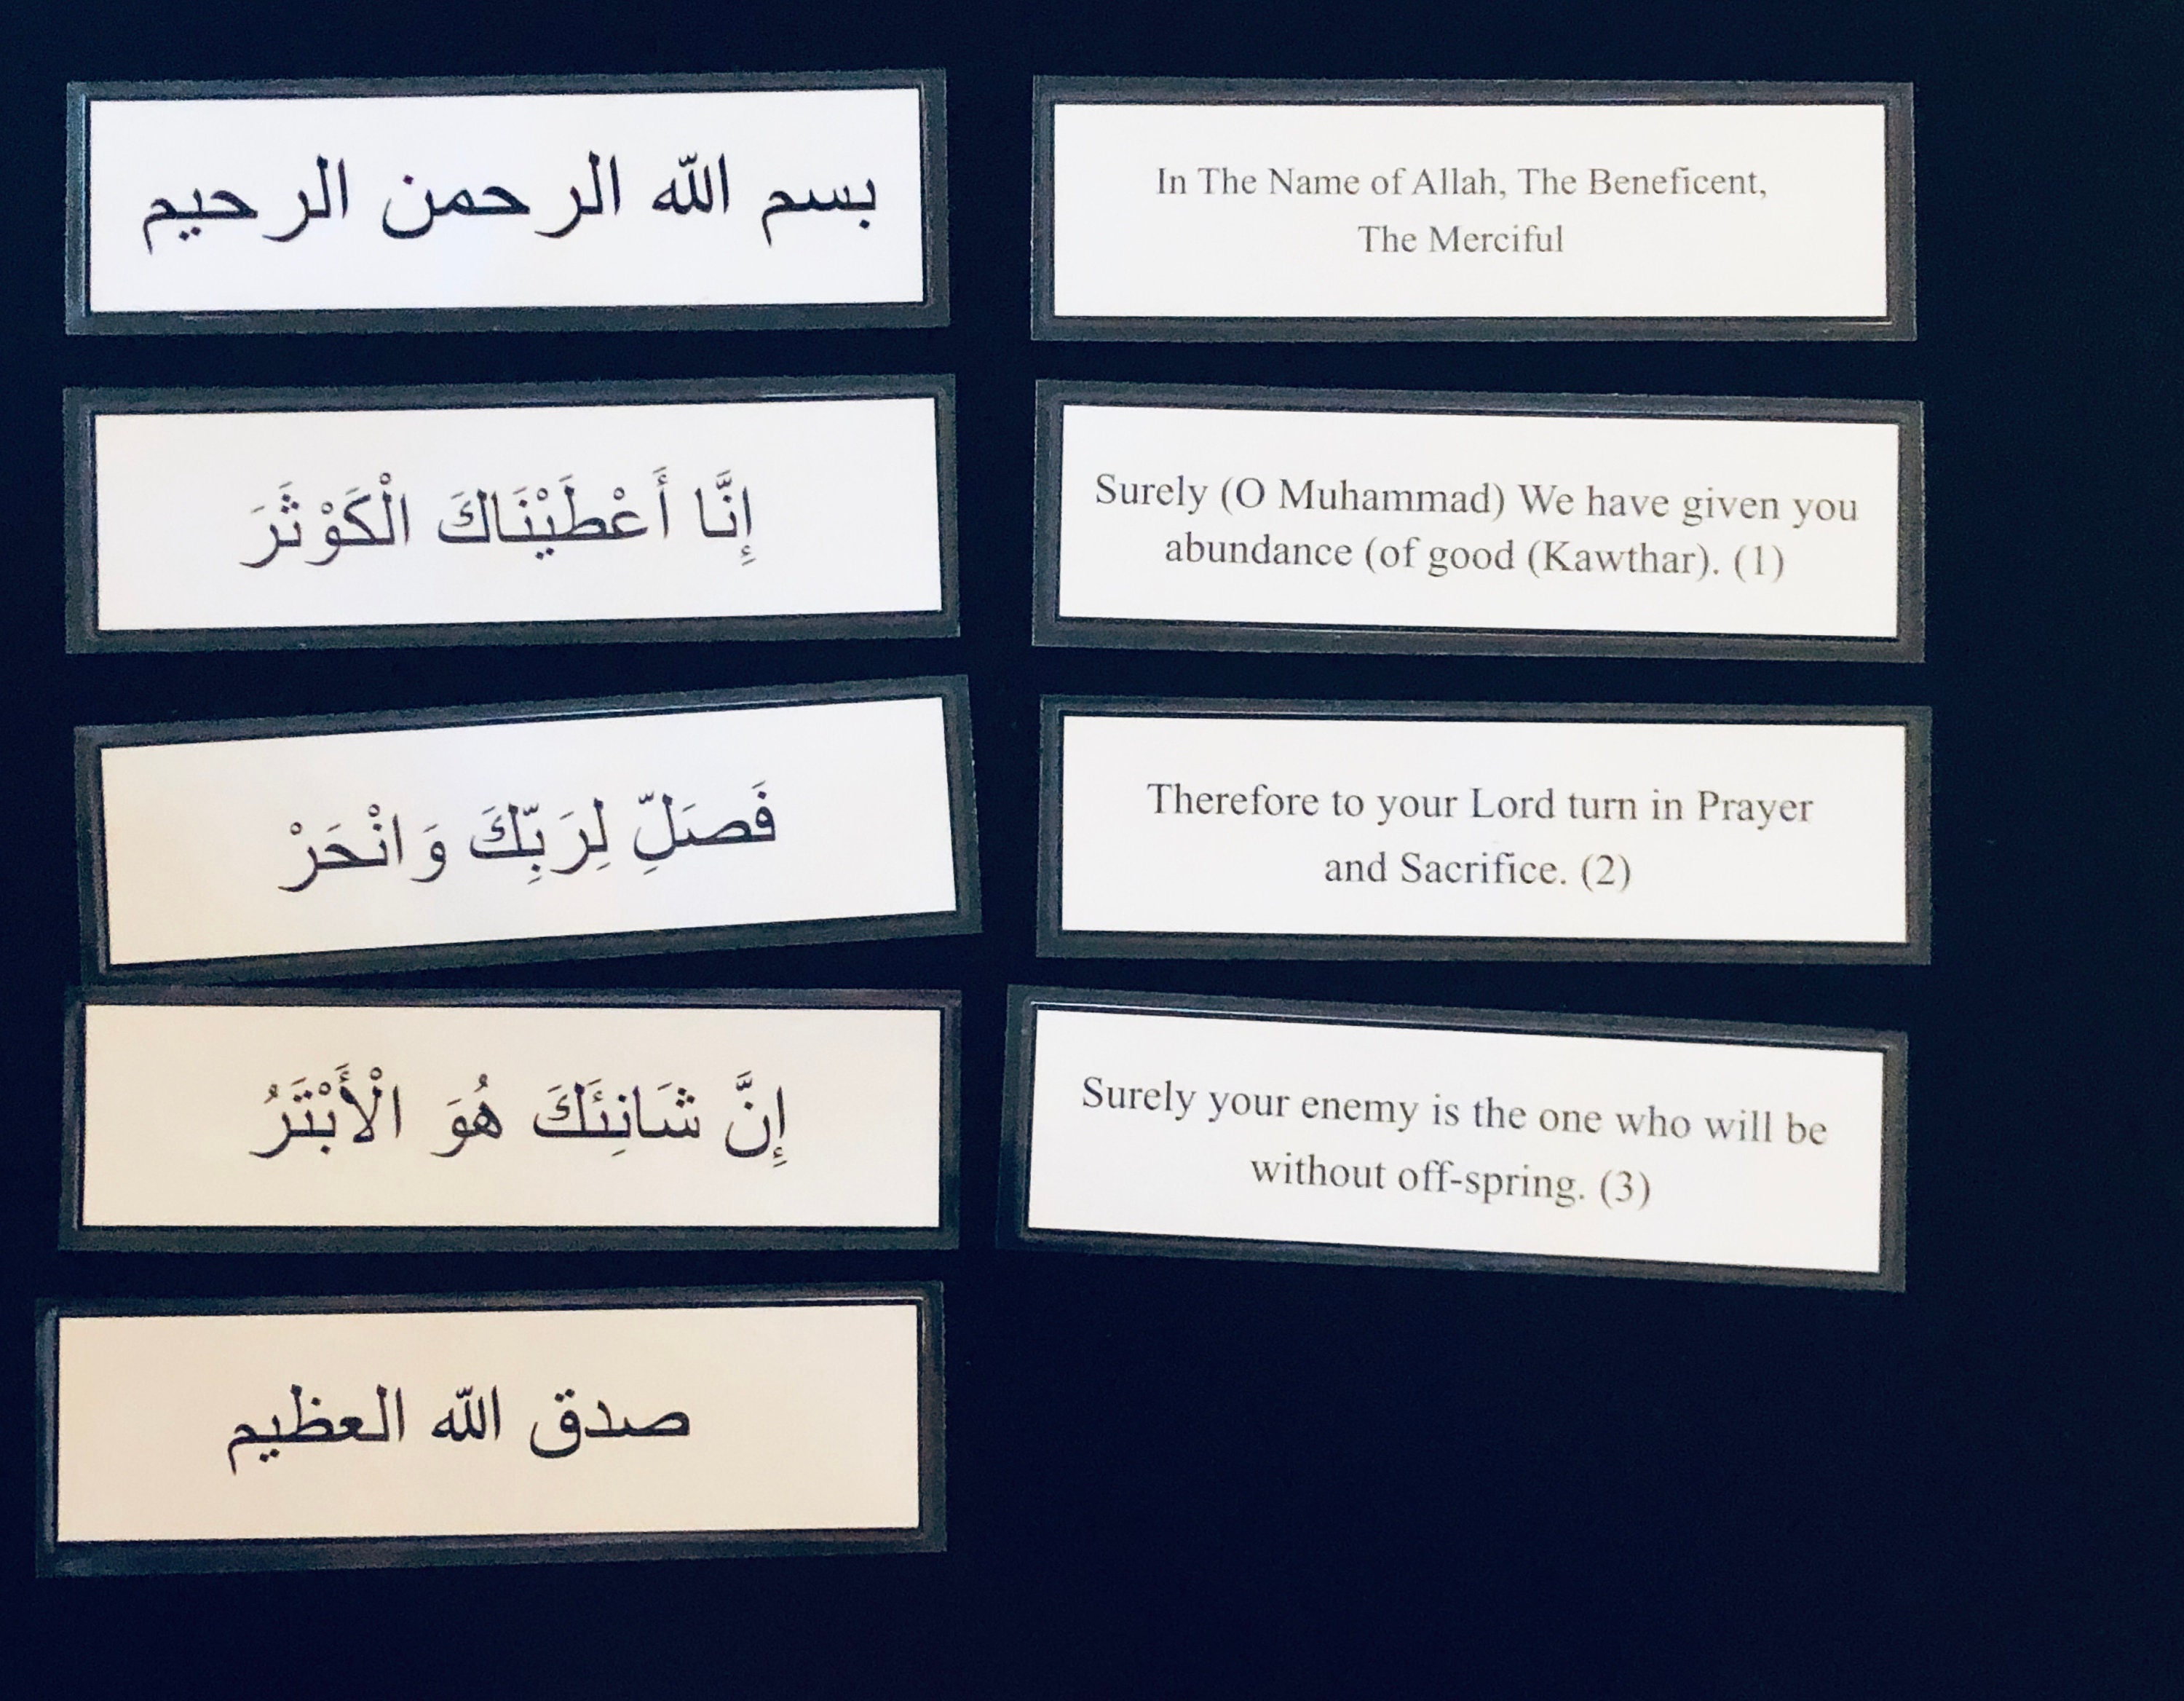 بسم الله الرحمن الرحيم
In The Name of Allah, The Beneficent,
The Merciful
إِنَّا أَعْطَيْنَاكَ الْكَوْثَرَ
Surely (O Muhammad) We have given you
abundance (of good (Kawthar). (1)
فَصَلِّ لِرَبِّكَ وَانْحَرْ
Therefore to your Lord turn in Prayer
and Sacrifice. (2)
إِنَّ شَانِئَكَ هُوَ الْأَبْتَرُ
Surely your enemy is the one who will be
without off-spring. (3)
صدق الله العظيم